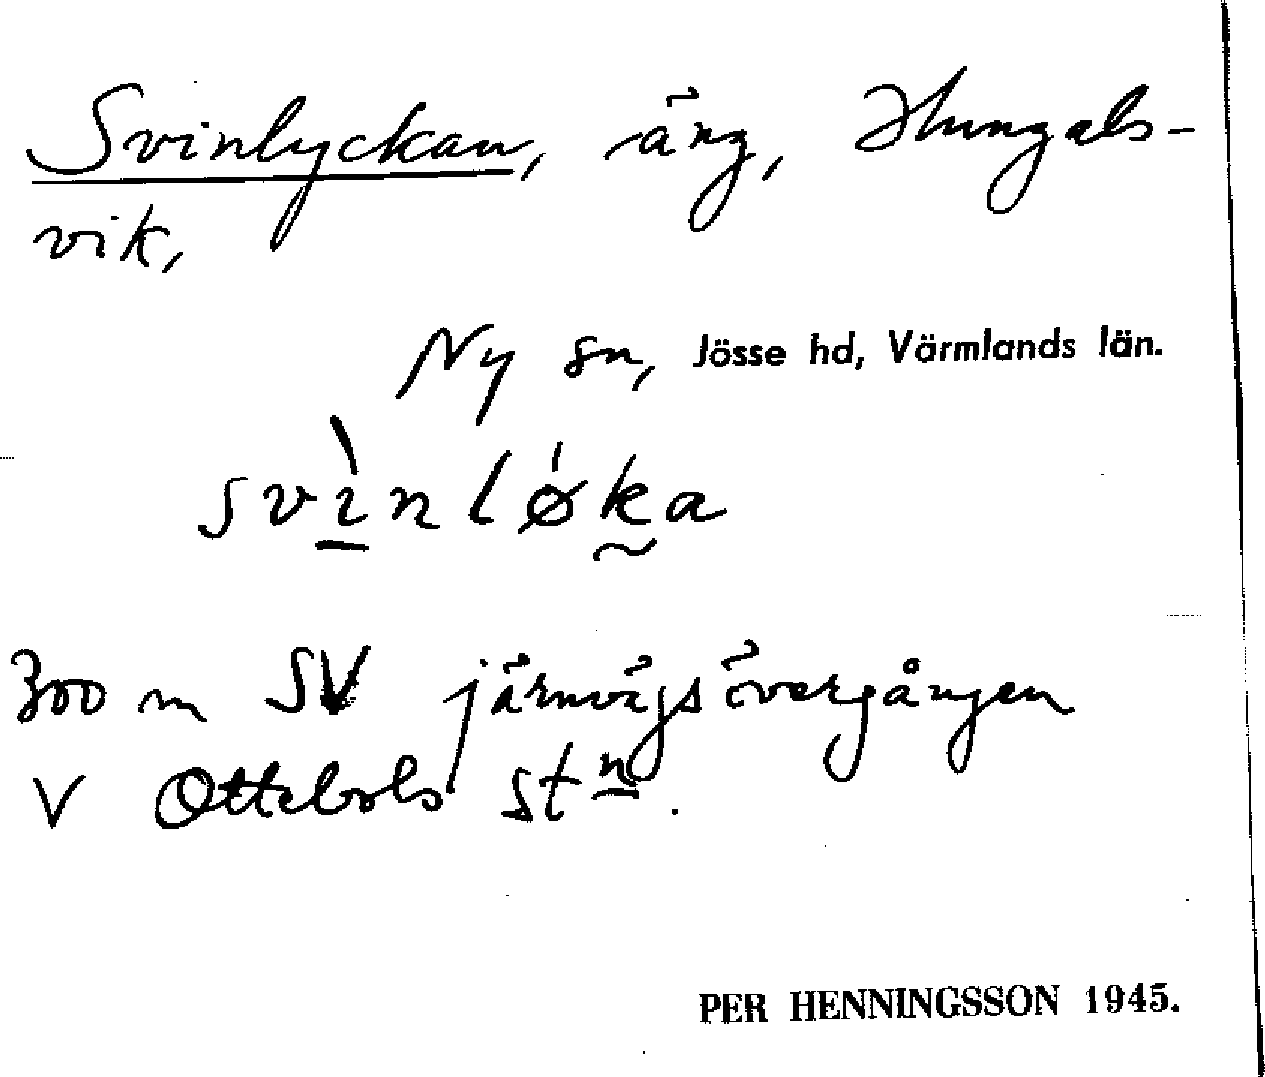 Svinlyckan, äng, Hungals-
vik,
Ny sn, Jösse hd, Värmlands län.
svìnløka
300 m SV järnvägsövergången
V Ottebols stn.
PER HENNINGSSON 1945.